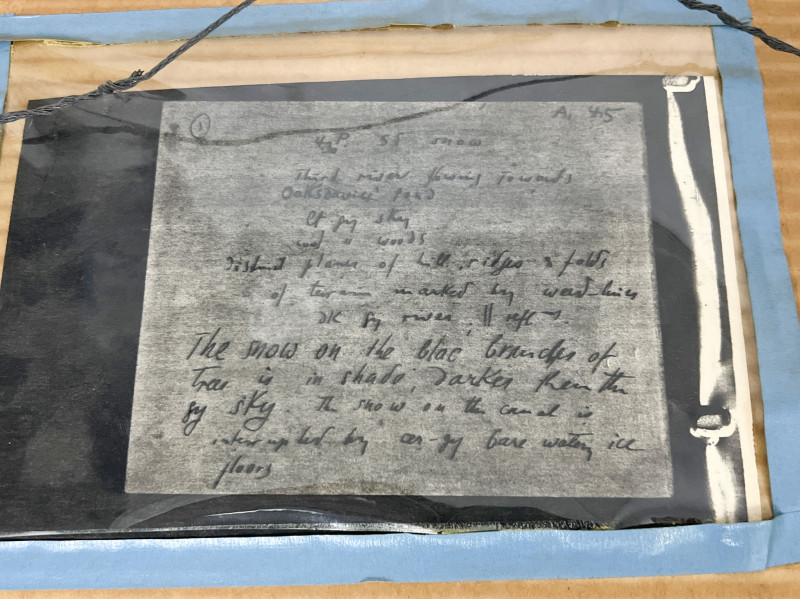 ① A. 45
55 snow
Third river flowing towards
pond
Lt gy sky
" woods
Distant planes of hill, ridges & folds
of terrain marked by wood-lines
DK gy river, || refl
The snow on the blac branches of
Trees is in shade, Darker than the
gy sky. The snow on the canal is
interrupted by gy bare watery ice
floors